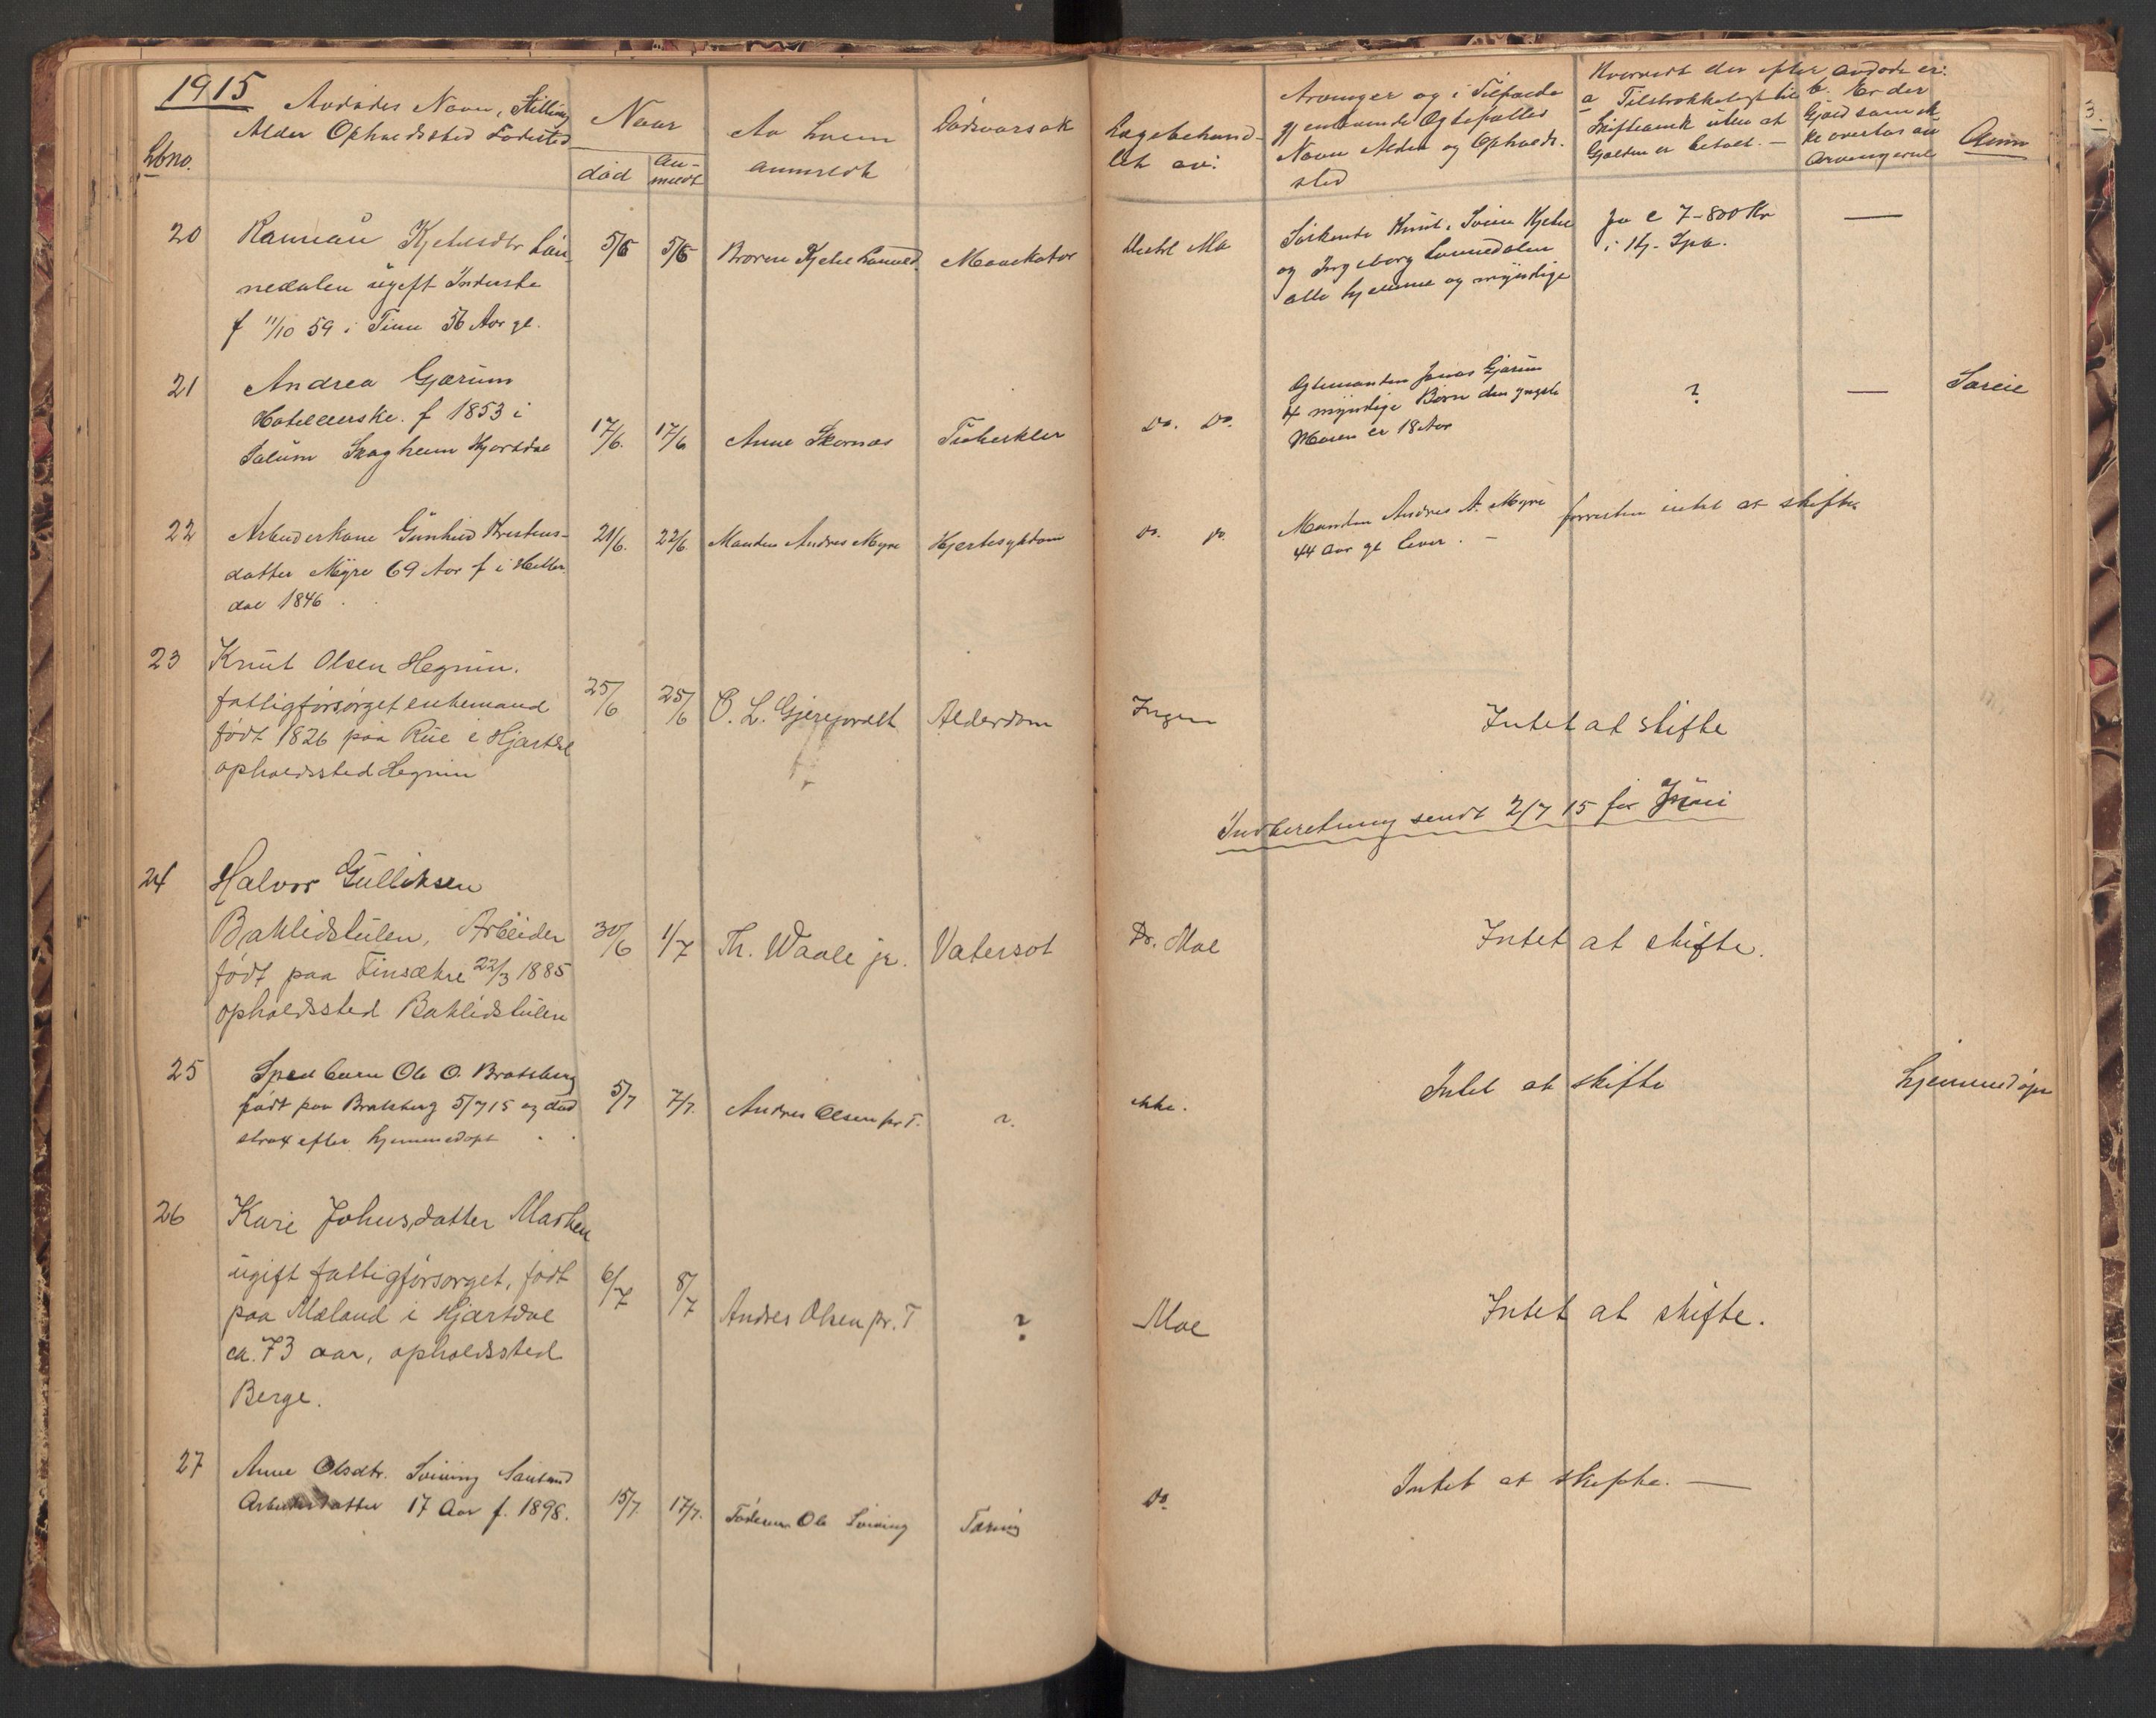 1915
Lbno.
Avdødes Navn, Stilling
Alder Opholdssted Fødested
Naar
død
an-
meldt
Av hvem
anmeldt
Dødsaarsak
Lægebehand-
let av:
Arvinger og i Tilfælde
gjenlevende Ægtefælles
Navn Alder og Opholds-
sted
Hvorvidt der efter avdøde er:
a Tilstrækkeligt til
Skiftearnk uten at
Gjælden er betalt. —
b. Er der
Gjæld som ik-
ke overtas av
Arvingerne
Anm
20
Kjetilsdtr Lon-
nedalen ugift Inderste
f 11/10 59 i Tinn 56 Aar gl.
5/6
5/6
Broren Kjetil Lonned.
Mavekatar
Mo
Søskende Knut, Svein Kjetil
og Ingeborg Lonnedalen
alle hjemme og myndige
Ja c 7-800 Kr
i Hj. Spb.
—
21
Andrea Gjærum
f 1853 i
Solum Skogheim Hjartdal
17/6.
17/6
Anne Skornes
Tuberkler
Do. Do.
Ægtemanden Jonas Gjærum
4 myndige Børn den yngste
Maren er 18 Aar
?
—
22
Arbeiderkone Gunhild Kristens-
datter Myre 69 Aar f i Hitter-
dal 1846.
21/6.
22/6
Manden Andres Myre
Hjertesykdom
Do. Do.
Manden Andres A. Myre
44 Aar gl lever. —
forresten intet at skifte
23
Knut Olsen Hegnin.
fattigforsørget enkemand
født 1826 paa Rue i Hjartdal
opholdssted Hegnin
25/6
25/6
O. L. Gjerejordet
Alderdom
Ingen
Intet at skifte
Indberetning sendt 2/7 15 for Juni
24
Halvor Gulliksen
Baklidstulen, Arbeider
født paa Finsækre 22/3 1885
opholdssted Baklidstulen
30/6
1/7
Th. Waale jr.
Vatersot
Dr. Moe
Intet at skifte.
25
Spedbarn Ole O. Bratsberg
født paa Bratsberg 5/7 15 og død
strax efter hjemmedøpt
5/7
7/7.
Andres Olsen pr T.
?
ikke.
Intet at skifte
hjemmedøpt
26
Kari Johnsdatter Marken
ugift fattigforsørget, født
paa Mæland i Hjartdal
ca. 73 aar, opholdssted
Berge.
6/7
8/7
Andres Olsen pr. T
?
Moe
Intet at skifte.
27
Anne Olsdtr. Svining Sauland
Arbeiderdatter 17 Aar f. 1898.
15/7.
17/7.
Faderen Ole Svining
Tæring
Do
Intet at skifte. —